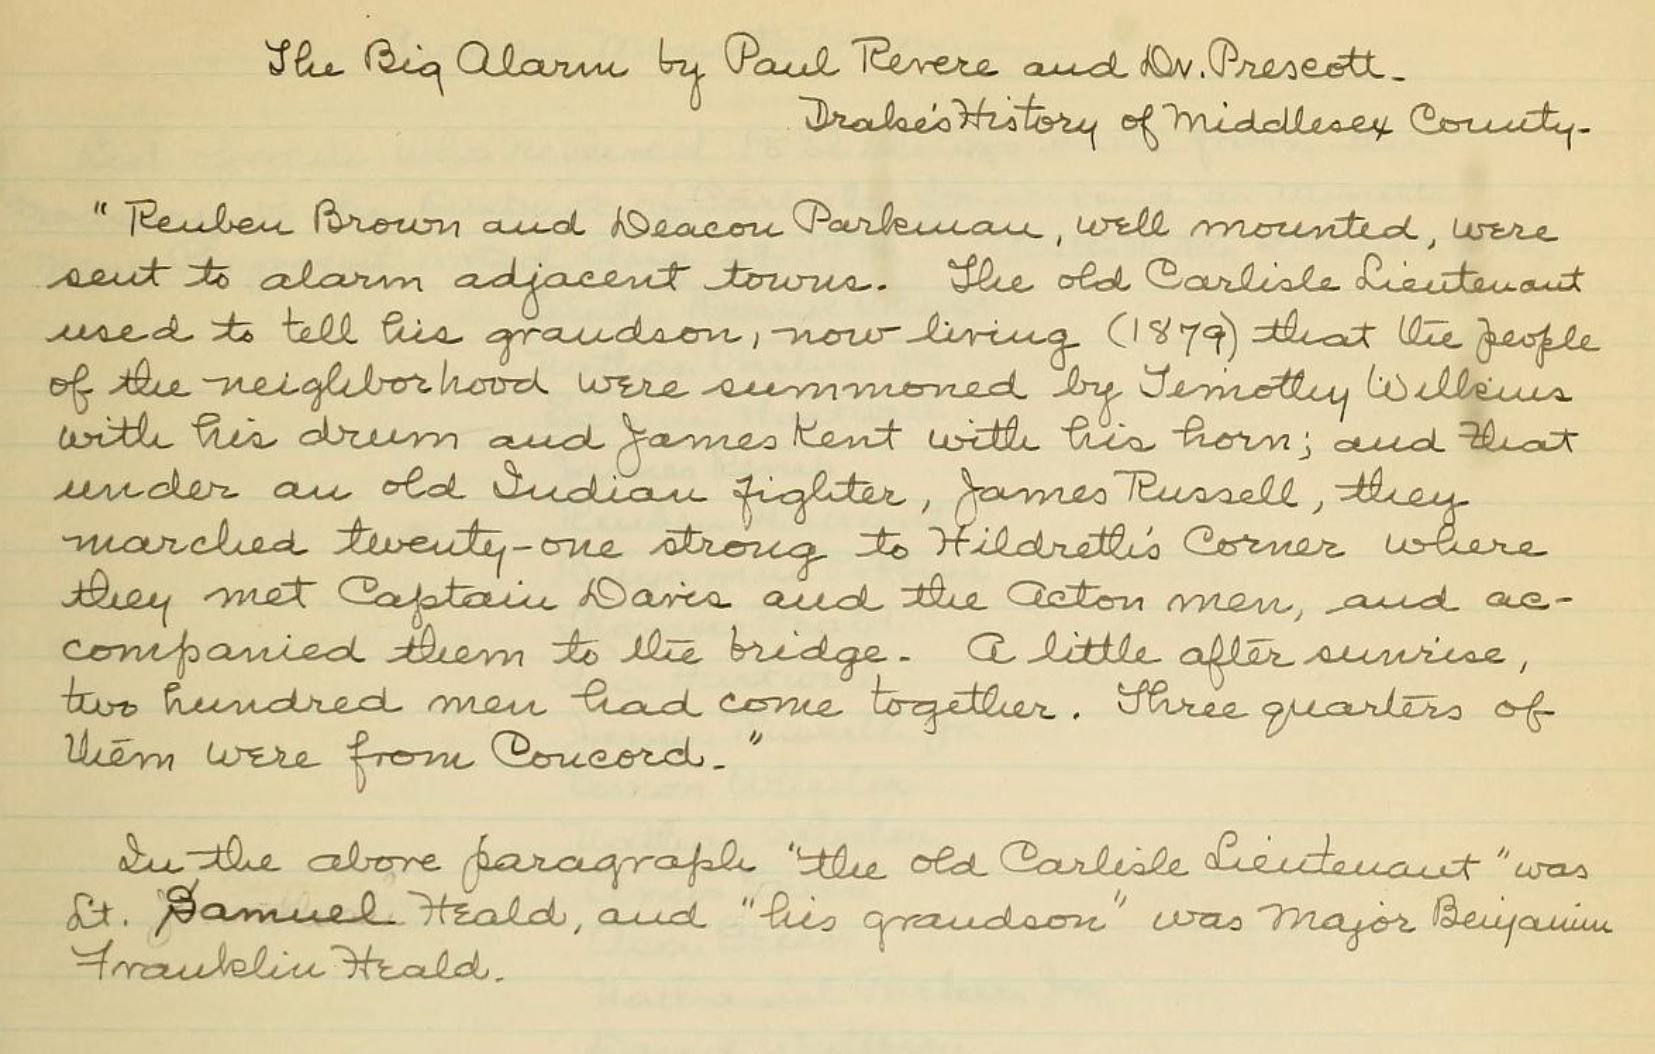 The Big Alarm by Paul Revere and Dr. Prescott.
Drake's History of Middlesex County.
"Reuben Brown and Deacon Parkman, well mounted, were
sent to alarm adjacent towns. The old Carlisle Lieutenant
used to tell his grandson, now living (1879) that the people
of the neighborhood were summoned by Timothy Wilkins
with his drum and James Kent with his horn; and that
under an old Indian fighter, James Russell, they
marched twenty-one strong to Hildreth's Corner where
they met Captain Davis and the Acton men, and ac-
companied them to the bridge. A little after sunrise,
two hundred men had come together. Three quarters of
them were from Concord."
In the above paragraph "the old Carlisle Lieutenant" was
Lt. Samuel Heald, and "his grandson" was Major Benjamin
Franklin Heald.